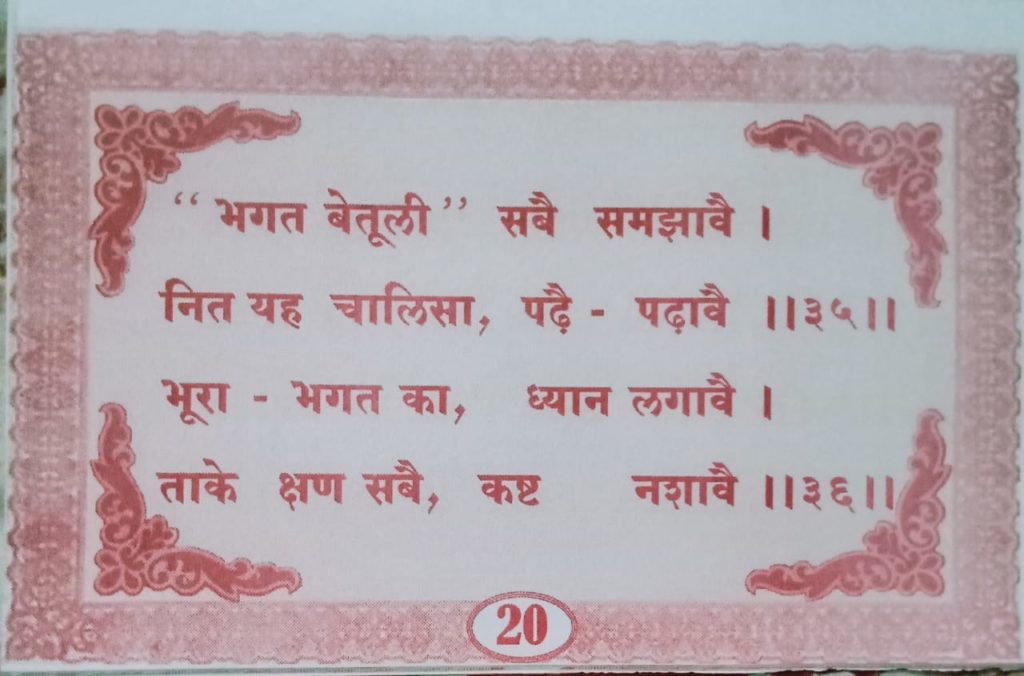 “भगत बेतूली” सबै समझावै ।
नित यह चालिसा, पढ़ै - पढ़ावै ।।३५।।
भूरा - भगत का, ध्यान लगावै ।
ताके क्षण सबै, कष्ट नशावै ।।३६।।
20